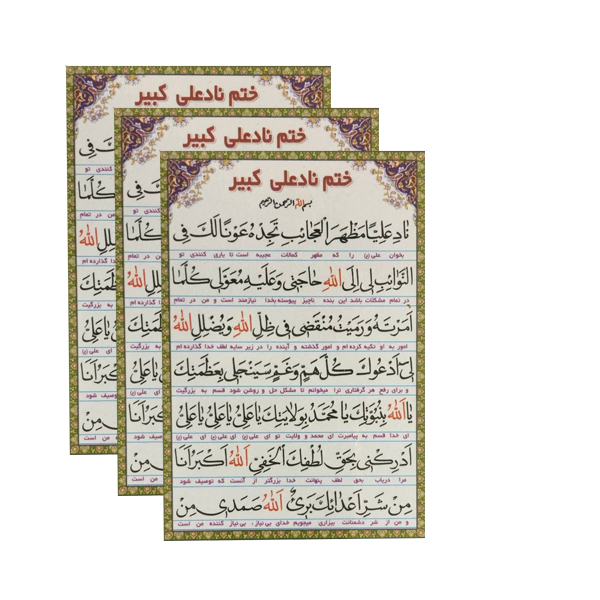 ختم ناد علی کبیر
بسم الله الرحمن الرحیم
نادِ عَلِیًّا مَظْهَرَ الْعَجائِبِ تَجِدْهُ عَوْنًا لَکَ فِی
بخوان علی(ع) را که مظهر کمالات عجیبه است تا یاری کنندی تو
النَّوائِبِ لِی اِلَی اللهِ حاجَتِی وَعَلَیْهِ مُعَوَّلِی کُلَّمَا
در تمام مشکلات باشد این بنده ناچیز پیوسته بخدا نیازمند است و من در تمام
اَمَرْتَهُ وَرَمَیْتُ مُنْقَضِی فِی ظِلِّ اللهِ وَیُضْلِلِ اللهُ
امور به او تکیه کرده ام و امور گذشته و آینده را در زیر سایه لطف خدا گذارده ام
لِی اَدْعُوکَ کُلَّ هَمٍّ وَغَمٍّ سَیَنْجَلِی بِعَظَمَتِکَ
و برای رفع هر گرفتاری ترا میخوانم تا مشکل حل و روشن شود قسم به بزرگیت
یا اَللهُ بِنُبُوَّتِکَ یا مُحَمَّدُ بِوِلایَتِکَ یا عَلِیُّ یا عَلِیُّ یا عَلِیُّ
ای خدا قسم به پیامبرت ای محمد و ولایت تو ای علی(ع) ای علی(ع) ای علی(ع)
اَدْرِکْنِی بِحَقِّ لُطْفِکَ الْخَفِیِّ اَللهُ اَکْبَرُ اَنَا
مرا دریاب بحق لطف پنهانت خدا بزرگتر از آنست که توصیف شود
مِنْ شَرِّ اَعْدائِکَ بَرِیءٌ اَللهُ صَمَدِی مِنْ
و من از شر دشمنانت بیزاری میجویم خدای بی نیاز، بی نیاز کننده من است